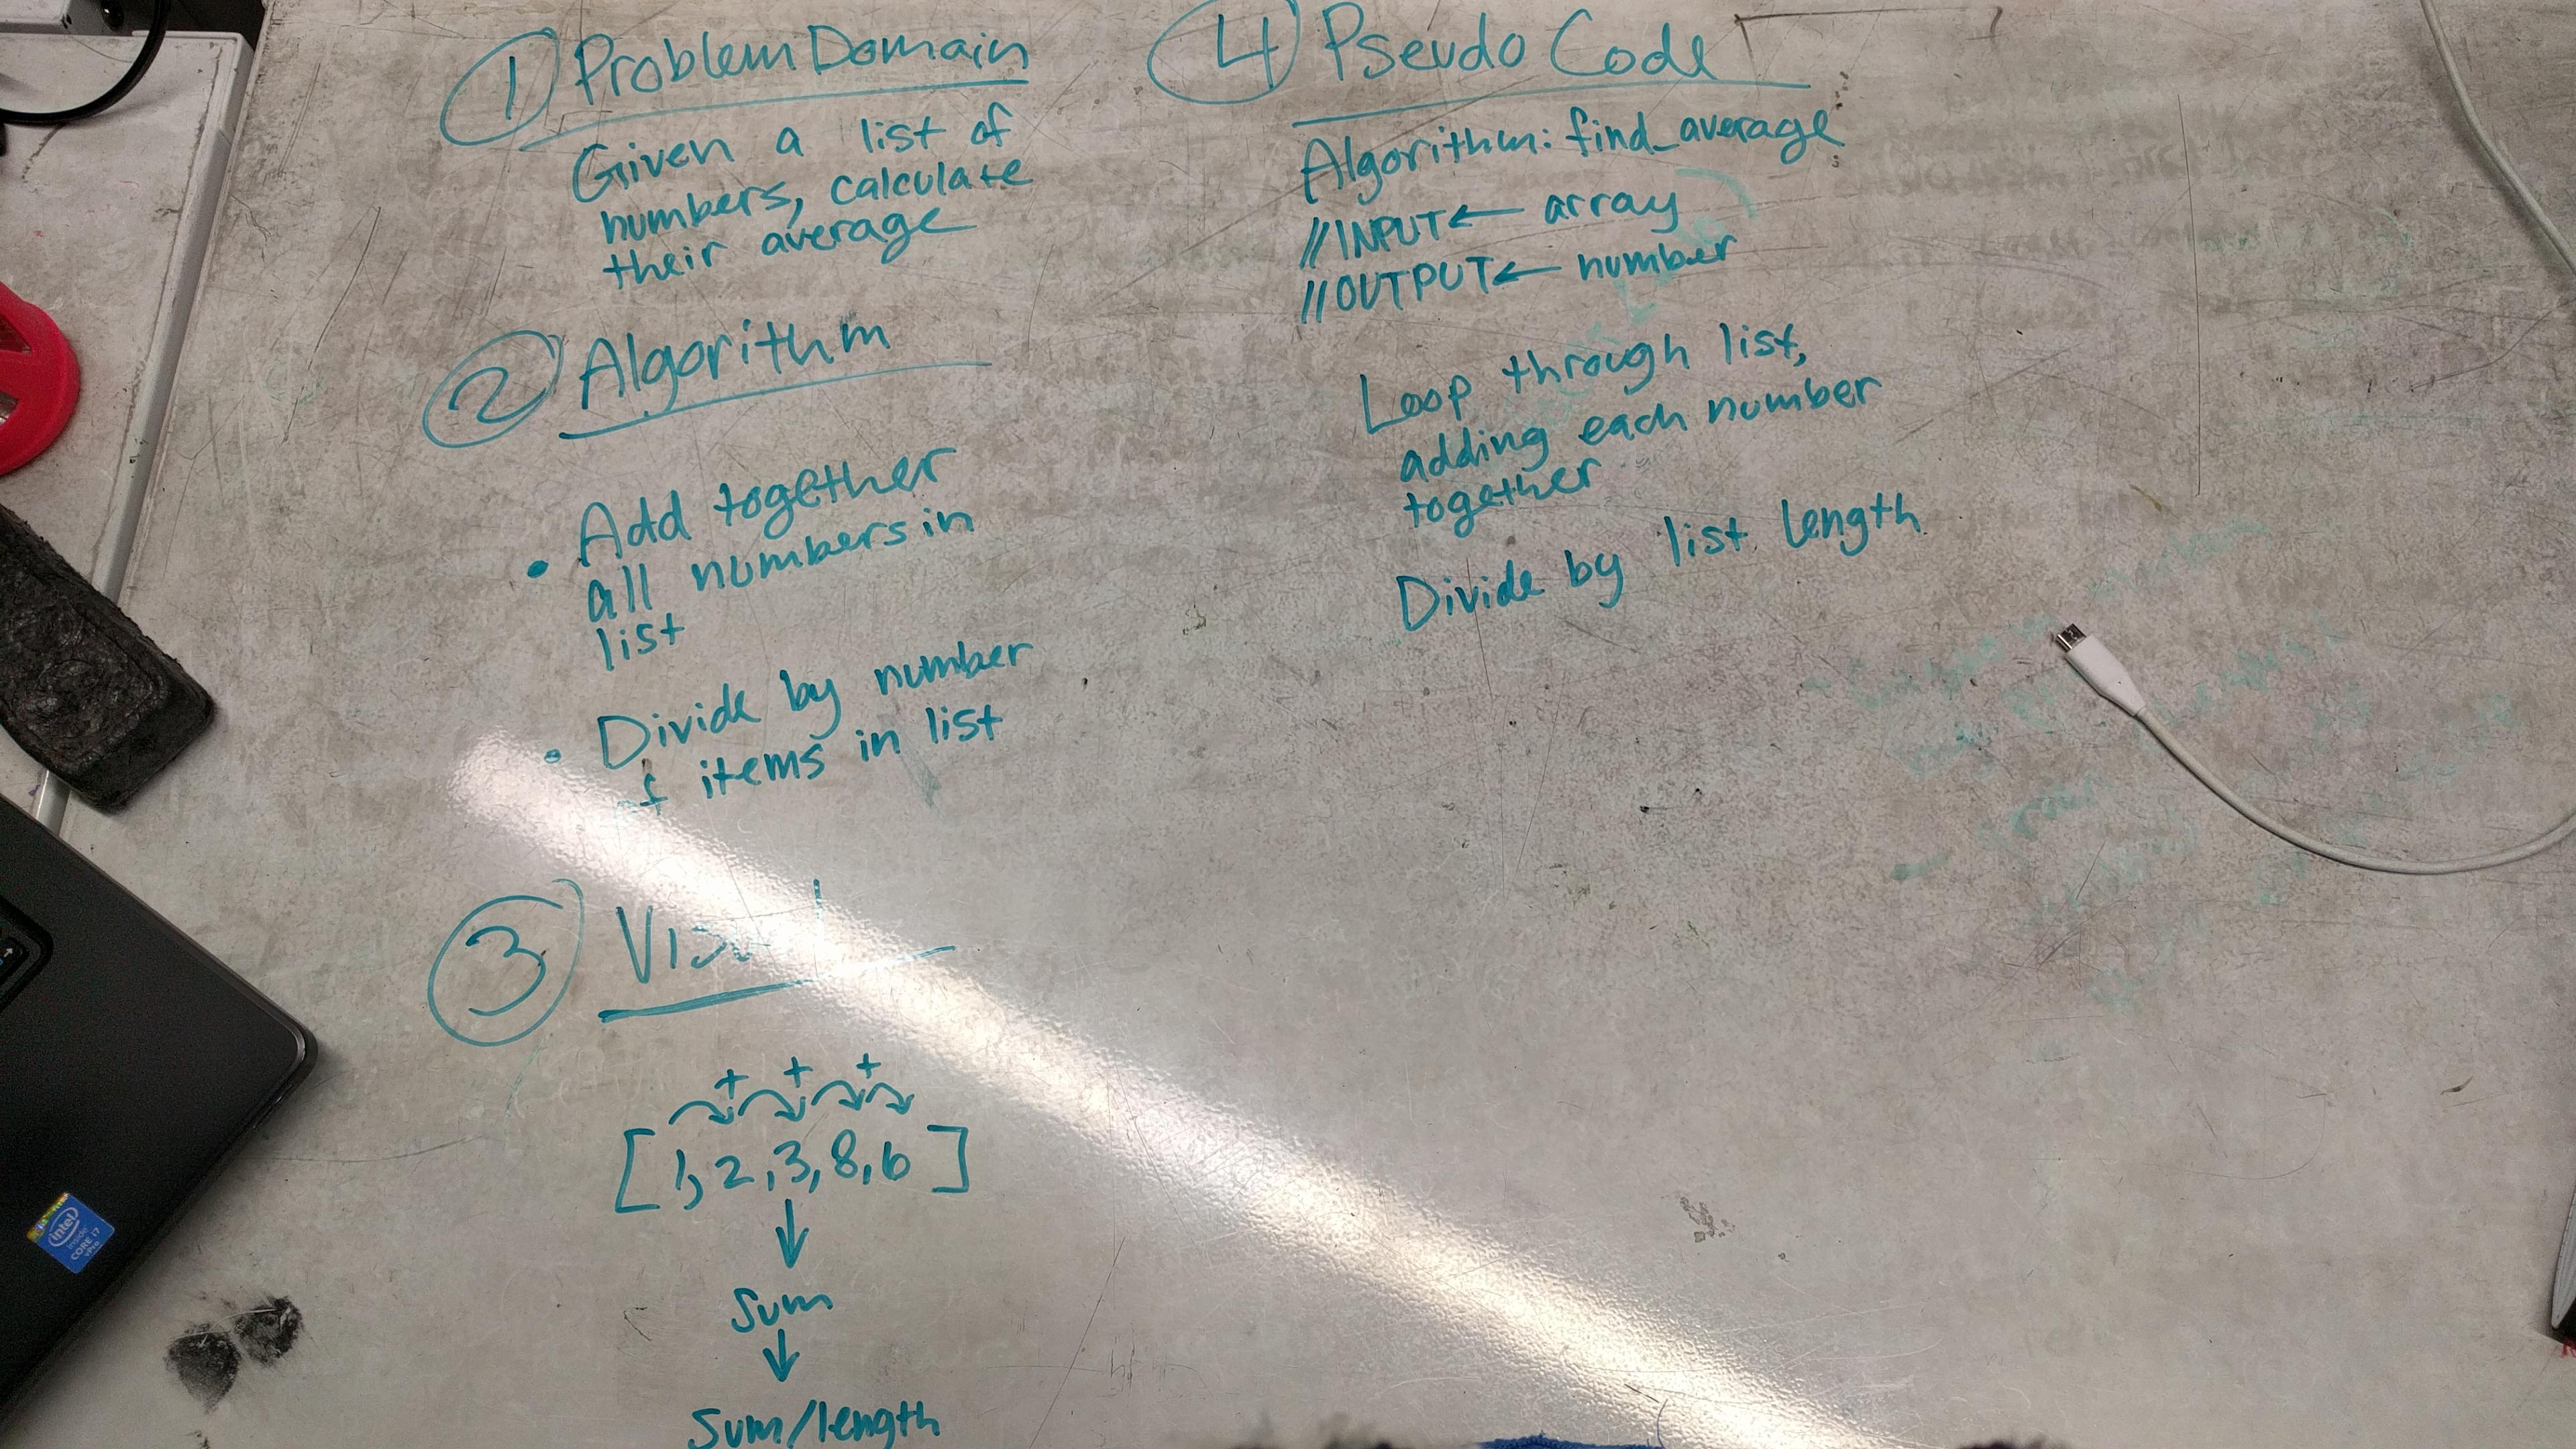 1 Problem Domain
Given a list of
numbers, calculate
their average
2 Algorithm
• Add together
all numbers in
list
• Divide by number
of items in list
3 Visual
+ + +
[1, 2, 3, 8, 6]
Sum
Sum/length
4 Pseudo Code
Algorithm: find_average
//INPUT ← array
//OUTPUT ← number
Loop through list,
adding each number
together
Divide by list length
intel
inside
CORE i7
vPro